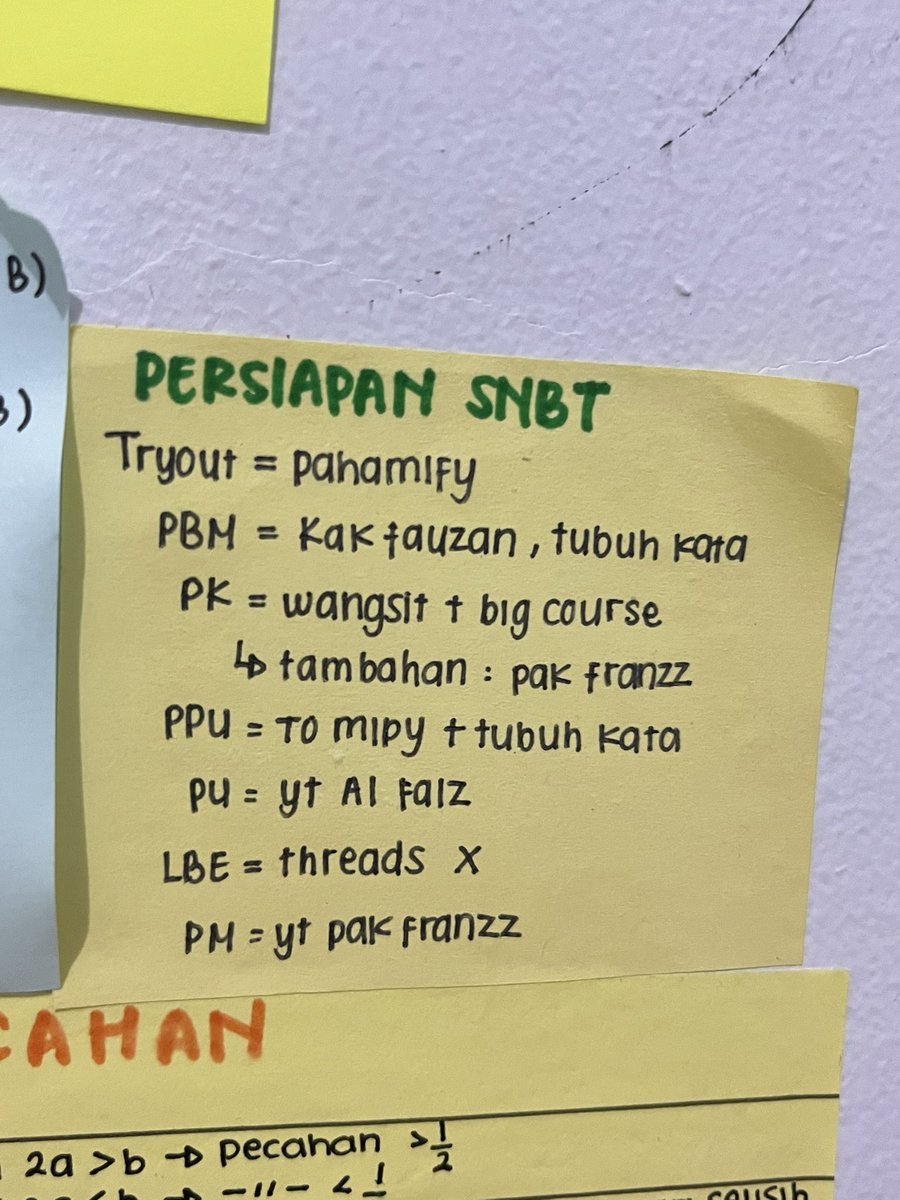 B)
B)
PERSIAPAN SNBT
Tryout = pahamify
PBM = Kak fauzan, tubuh kata
PK = wangsit + big course
↳ tambahan : pak franzz
PPU = TO mipy + tubuh kata
PU = yt Al Faiz
LBE = threads X
PM = yt pak franzz
CAHAN
2a > b → pecahan > 1/2
< b → -"- < 1